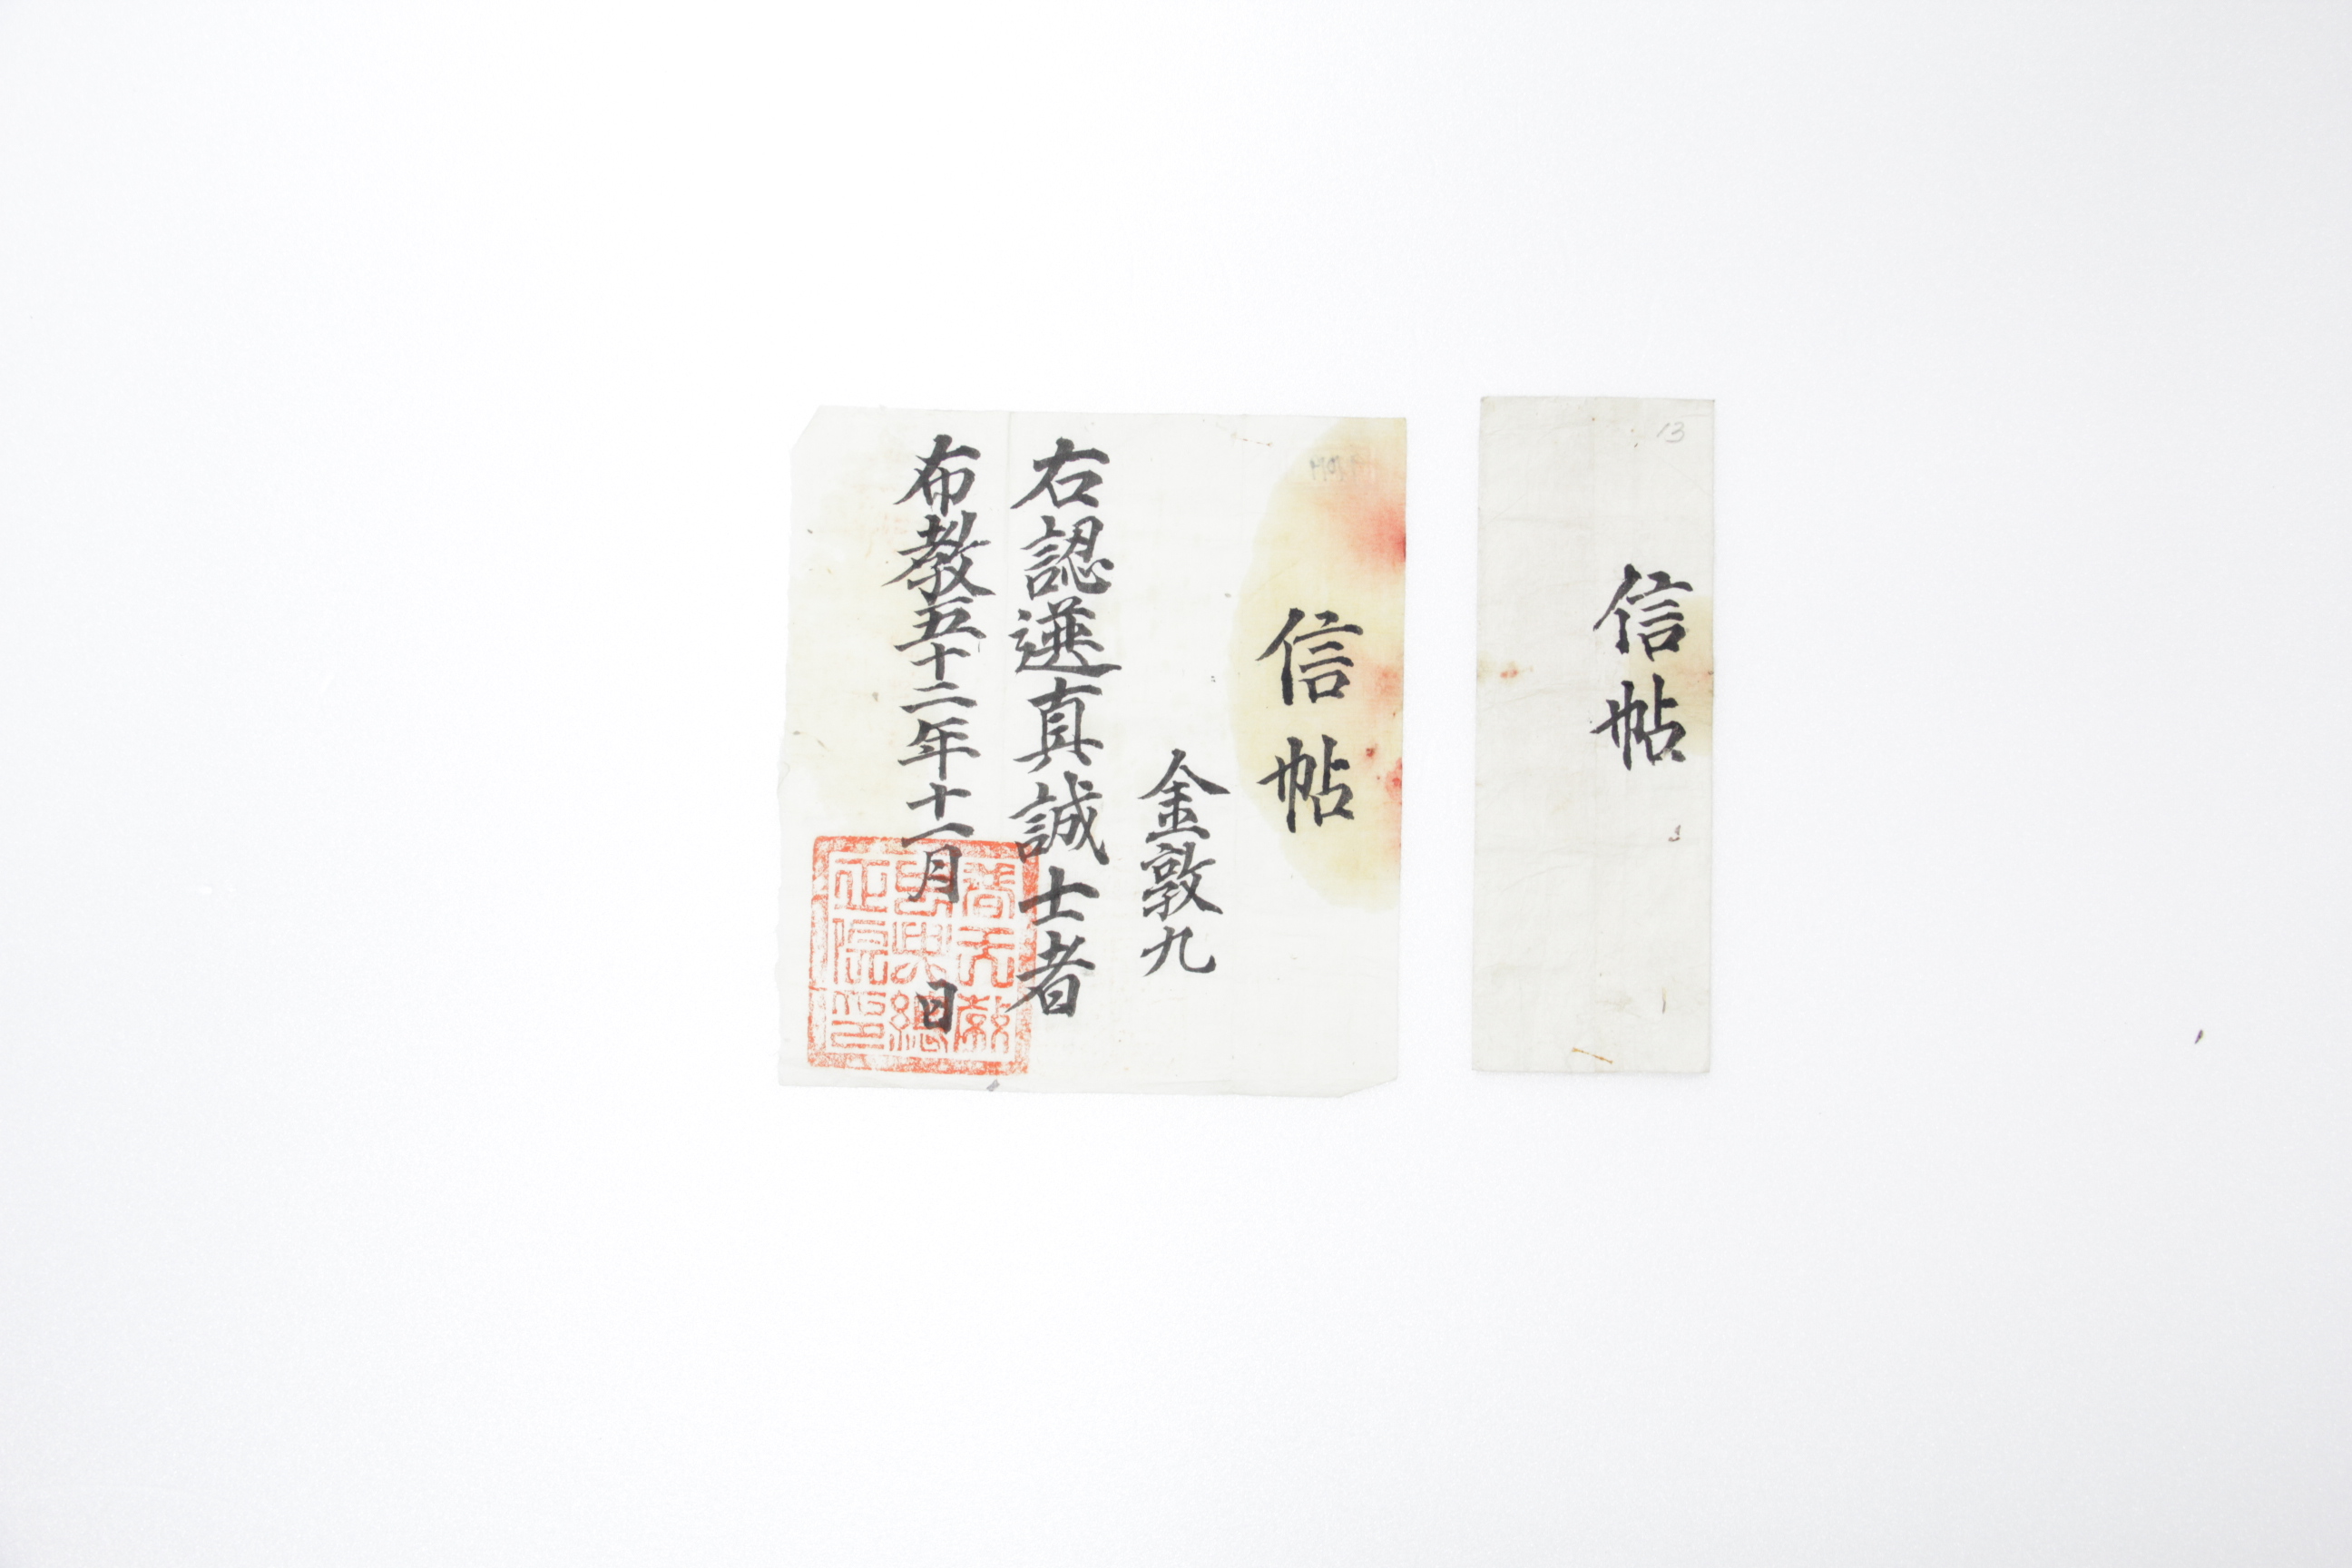 13
信帖
信帖
金敦九
右認選真誠士者
布教五十二年十一月 日